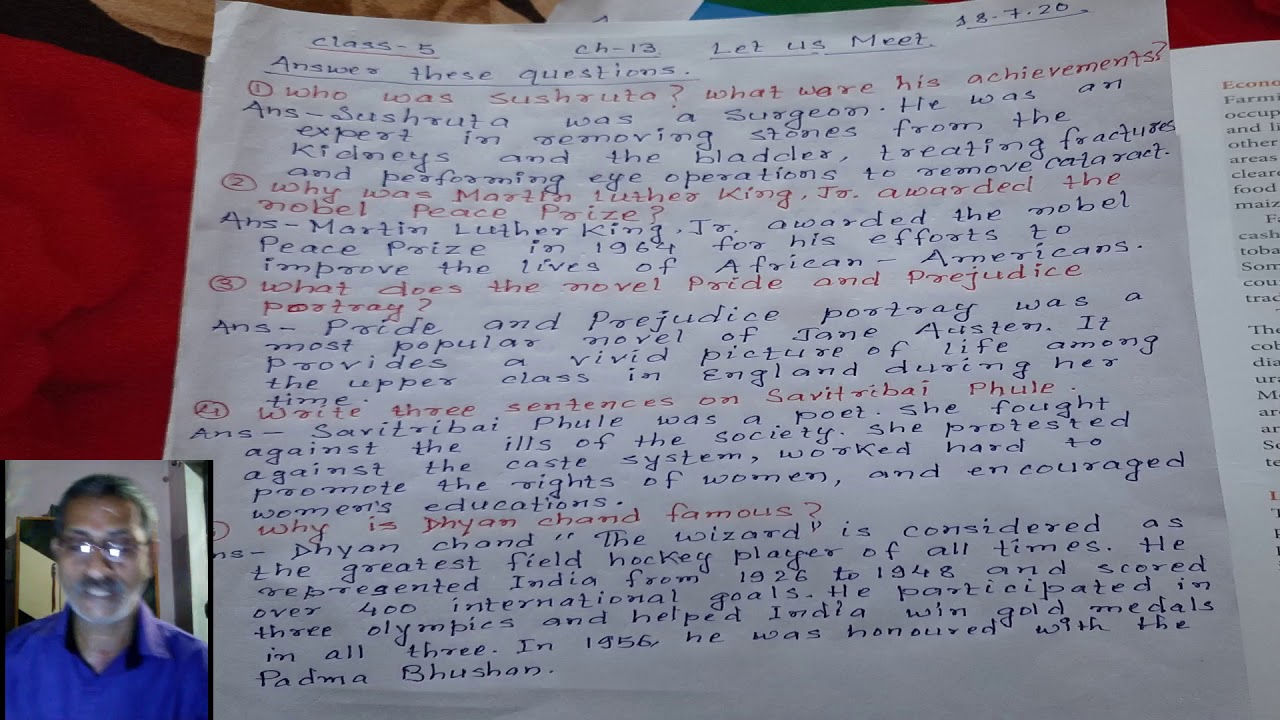 18.7.20
Class-5 Ch-13 Let us Meet
Answer these questions.
① Who was Sushruta? What were his achievements?
Ans- Sushruta was a surgeon. He was an
expert in removing stones from the
kidneys and the bladder, treating fractures
and performing eye operations to remove cataract.
② Why was Martin Luther King, Jr. awarded the
nobel Peace Prize?
Ans- Martin Luther King, Jr. awarded the nobel
Peace Prize in 1964 for his efforts to
improve the lives of African-Americans.
③ What does the novel Pride and Prejudice
portray?
Ans- Pride and Prejudice portray was a
most popular novel of Jane Austen. It
provides a vivid picture of life among
the upper class in England during her
time.
④ Write three sentences on Savitribai Phule.
Ans- Savitribai Phule was a poet. She fought
against the ills of the society. She protested
against the caste system, worked hard to
promote the rights of women, and encouraged
women's educations.
Why is Dhyan chand famous?
ns- Dhyan chand "The wizard" is considered as
the greatest field hockey player of all times. He
represented India from 1926 to 1948 and scored
over 400 international goals. He participated in
three olympics and helped India win gold medals
in all three. In 1956, he was honoured with the
Padma Bhushan.
Econo
Farmi
occup
and li
other
areas
cleare
food
maiz
cash
toba
Som
cou
trac
The
cob
dia
ura
M
an
ar
So
te